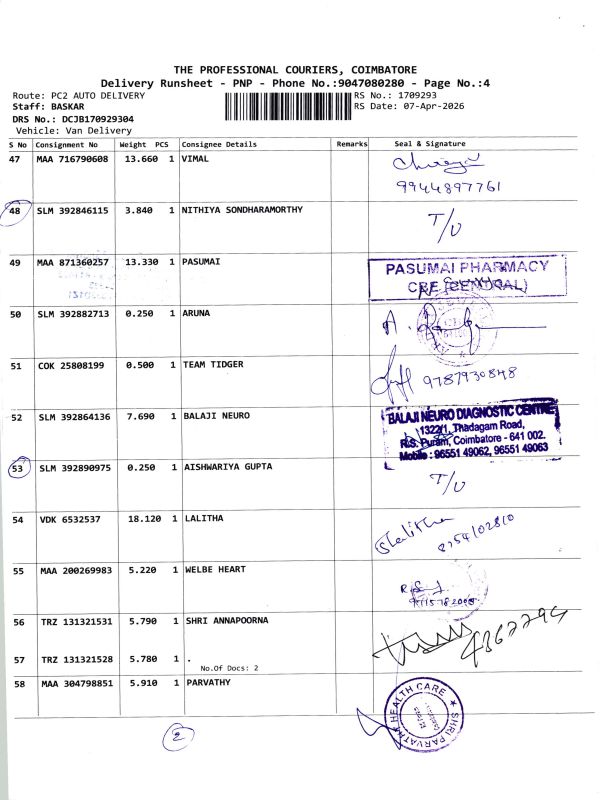 THE PROFESSIONAL COURIERS, COIMBATORE
Delivery Runsheet - PNP - Phone No.:9047080280 - Page No.:4
Route: PC2 AUTO DELIVERY RS No.: 1709293
Staff: BASKAR RS Date: 07-Apr-2026
DRS No.: DCJB170929304
Vehicle: Van Delivery
S No Consignment No Weight PCS Consignee Details Remarks Seal & Signature
47 MAA 716790608 13.660 1 VIMAL
9944897761
48 SLM 392846115 3.840 1 NITHIYA SONDHARAMORTHY T/U
49 MAA 871360257 13.330 1 PASUMAI PASUMAI PHARMACY
CBE (CENTRAL)
50 SLM 392882713 0.250 1 ARUNA
51 COK 25808199 0.500 1 TEAM TIDGER 9787930848
52 SLM 392864136 7.690 1 BALAJI NEURO BALAJI NEURO DIAGNOSTIC CENTRE
1322/1, Thadagam Road,
R.S. Puram, Coimbatore - 641 002.
Mobile : 96551 49062, 96551 49063
53 SLM 392890975 0.250 1 AISHWARIYA GUPTA T/U
54 VDK 6532537 18.120 1 LALITHA Lalitha 8754102810
55 MAA 200269983 5.220 1 WELBE HEART
56 TRZ 131321531 5.790 1 SHRI ANNAPOORNA
57 TRZ 131321528 5.780 1 .
No.Of Docs: 2
58 MAA 304798851 5.910 1 PARVATHY SHRI PARVATHI HEALTH CARE
2